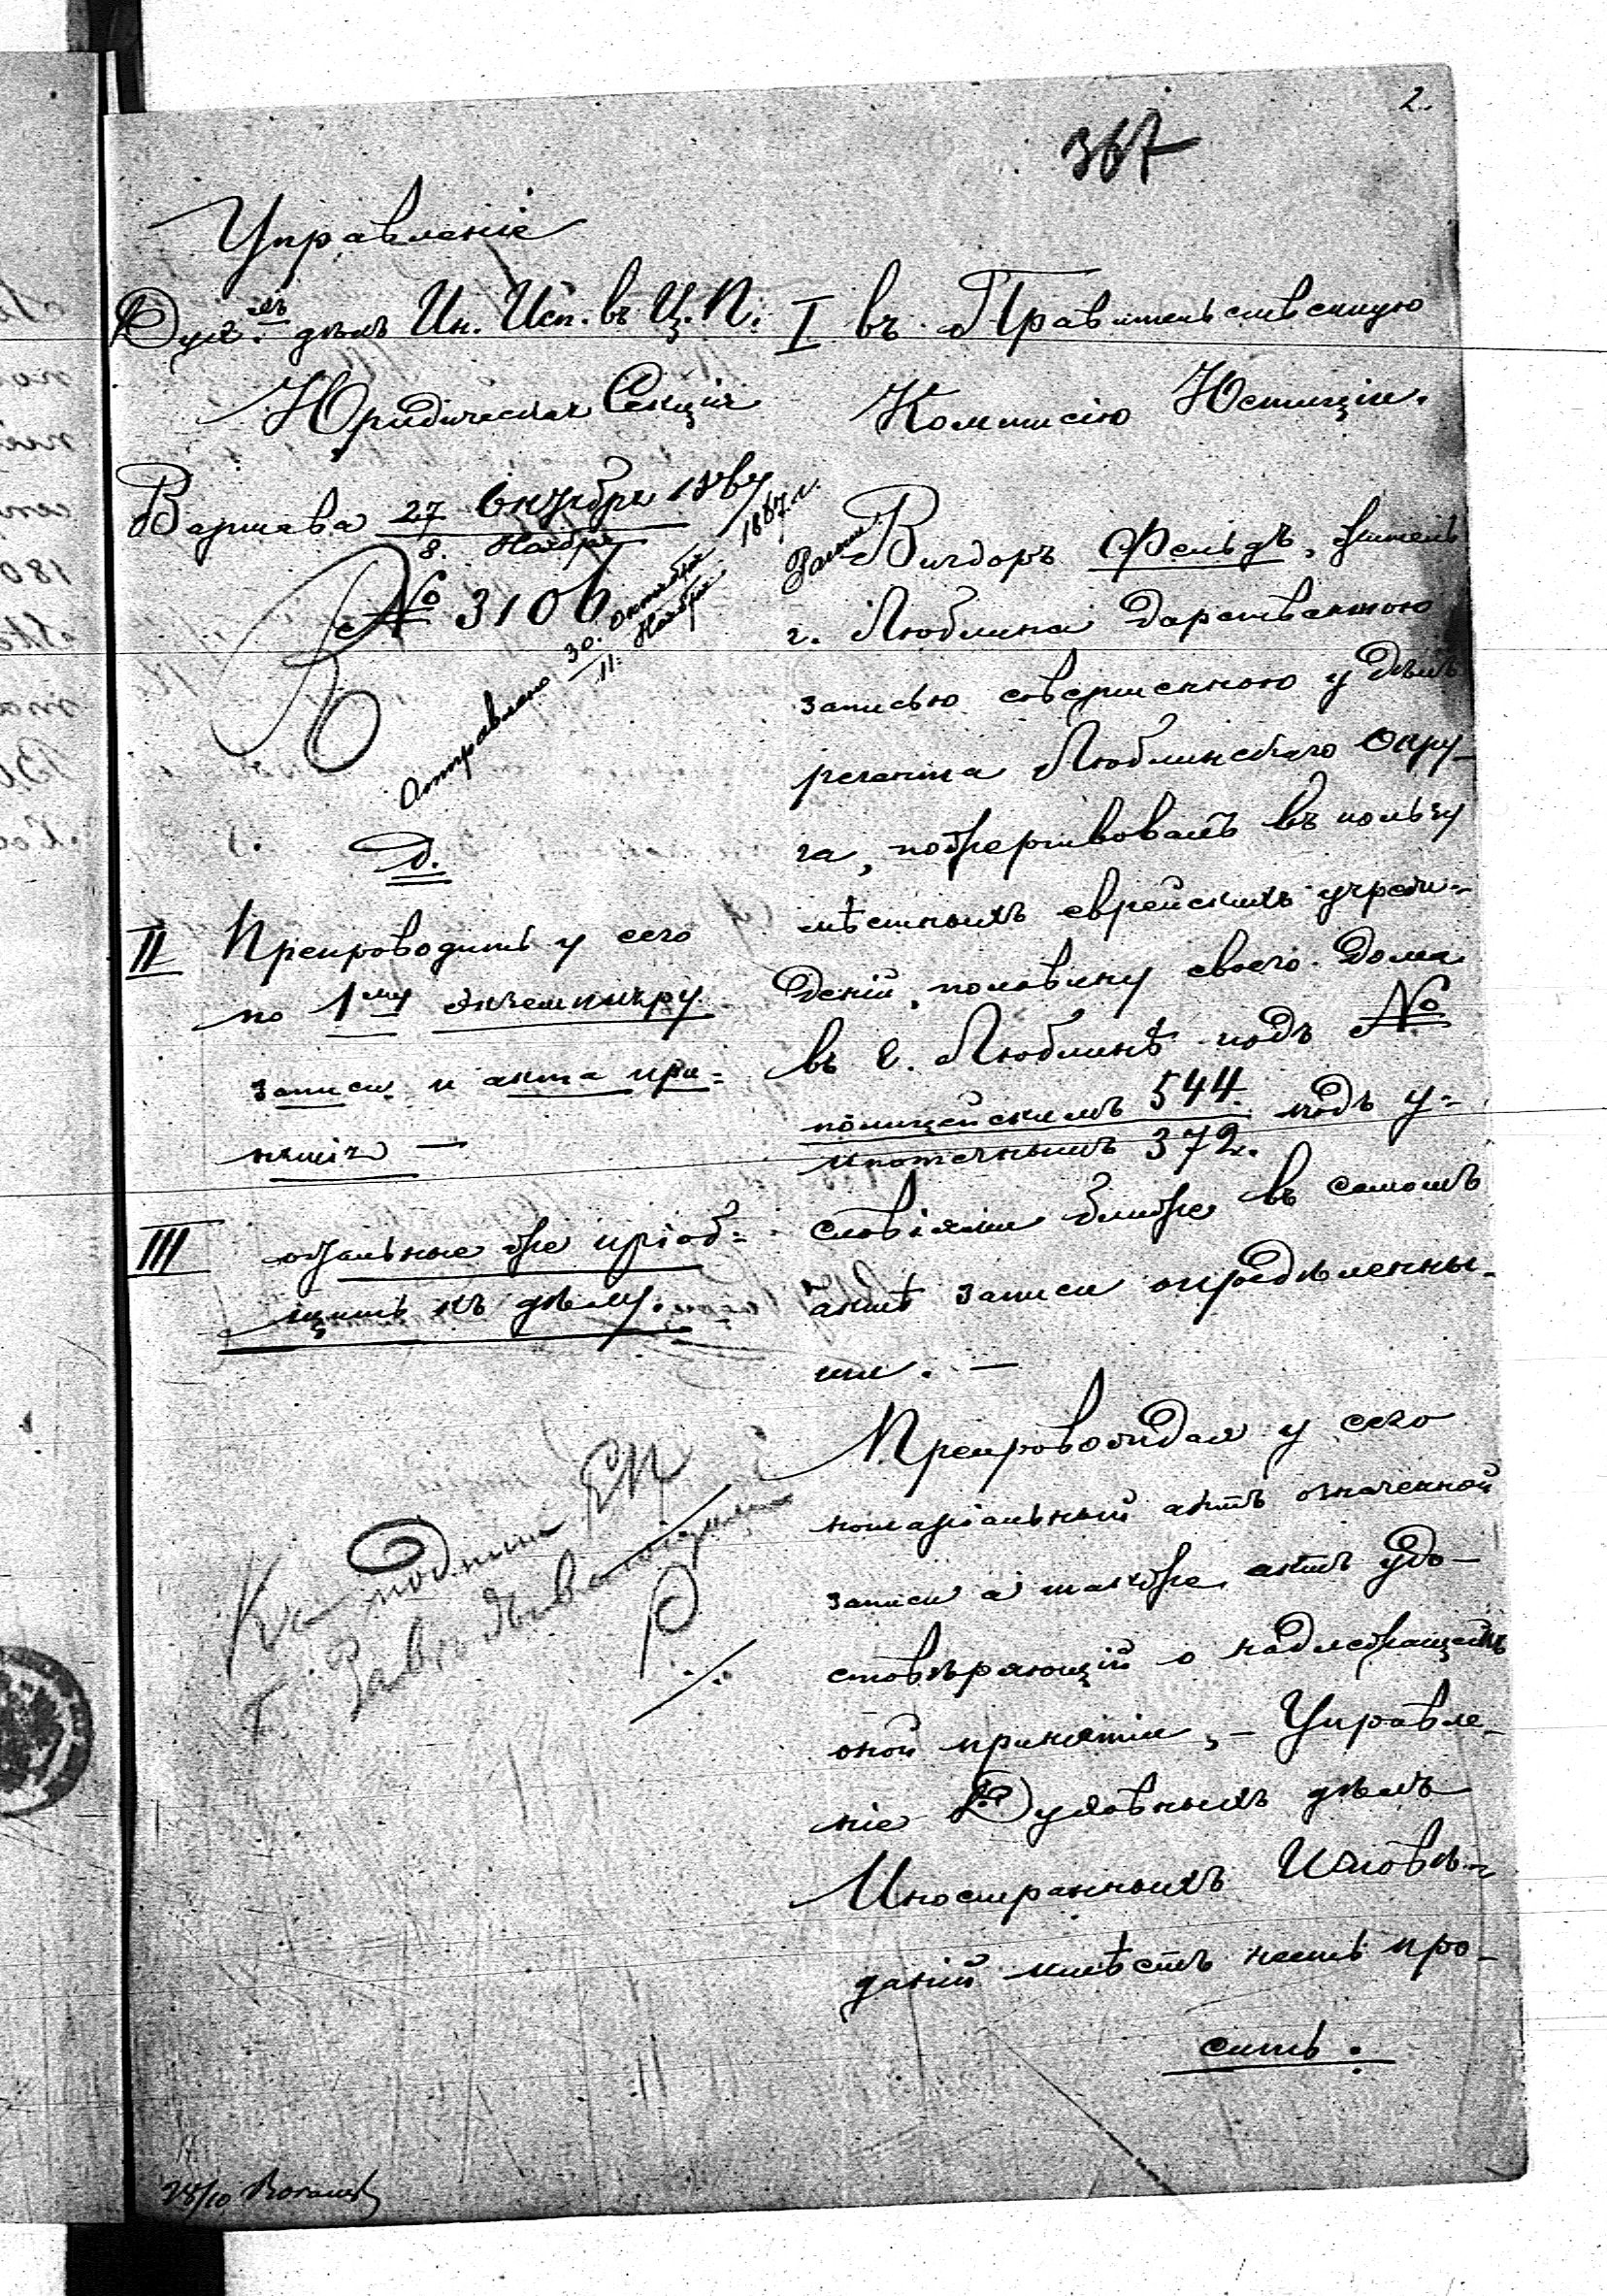 2.
367
Управленіе
Дух.ыхъ дѣлъ Ин. Исп. въ Ц. П.
Юридическая Секція
Варшава 27 Октября 1867
8. Ноября
№ 3106
Отправлено 30. Октября 1867 г.
11. Ноября
Д.
II Препроводить у сего
по 1му экземпляру
записи и акта при=
нятія —
III остальные же пріоб=
щить къ дѣлу.
I въ Правительственную
Коммисію Юстиціи.
Вигдоръ Фельдъ, житель
г. Люблина дарственною
записью совершенною у
регента Люблинскаго Окру-
га, пожертвовалъ въ пользу
мѣстныхъ еврейскихъ учреж=
деній, половину своего дома
въ г. Люблинѣ подъ №
полицейскимъ 544. подъ у=
ипотечнымъ 372.
словіями ближе въ самомъ
актѣ записи опредѣленны-
ми. —
Препровождая у сего
нотаріальный актъ означенной
записи а также актъ удо-
стовѣряющій о надлежащемъ
оной принятіи, — Управле-
ніе Духовныхъ дѣлъ
Иностранныхъ Исповѣ-
даній имѣетъ честь про-
сить.
28/10